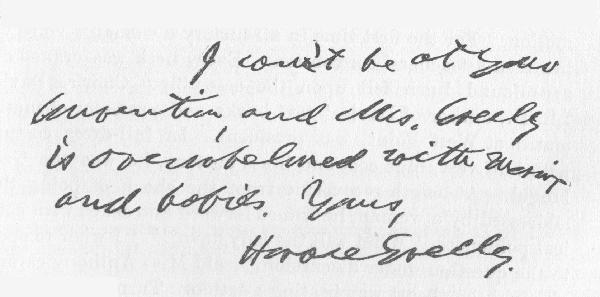 I can't be at your
Convention, and Mrs. Greeley
is overwhelmed with music
and babies. Yours,
Horace Greeley.